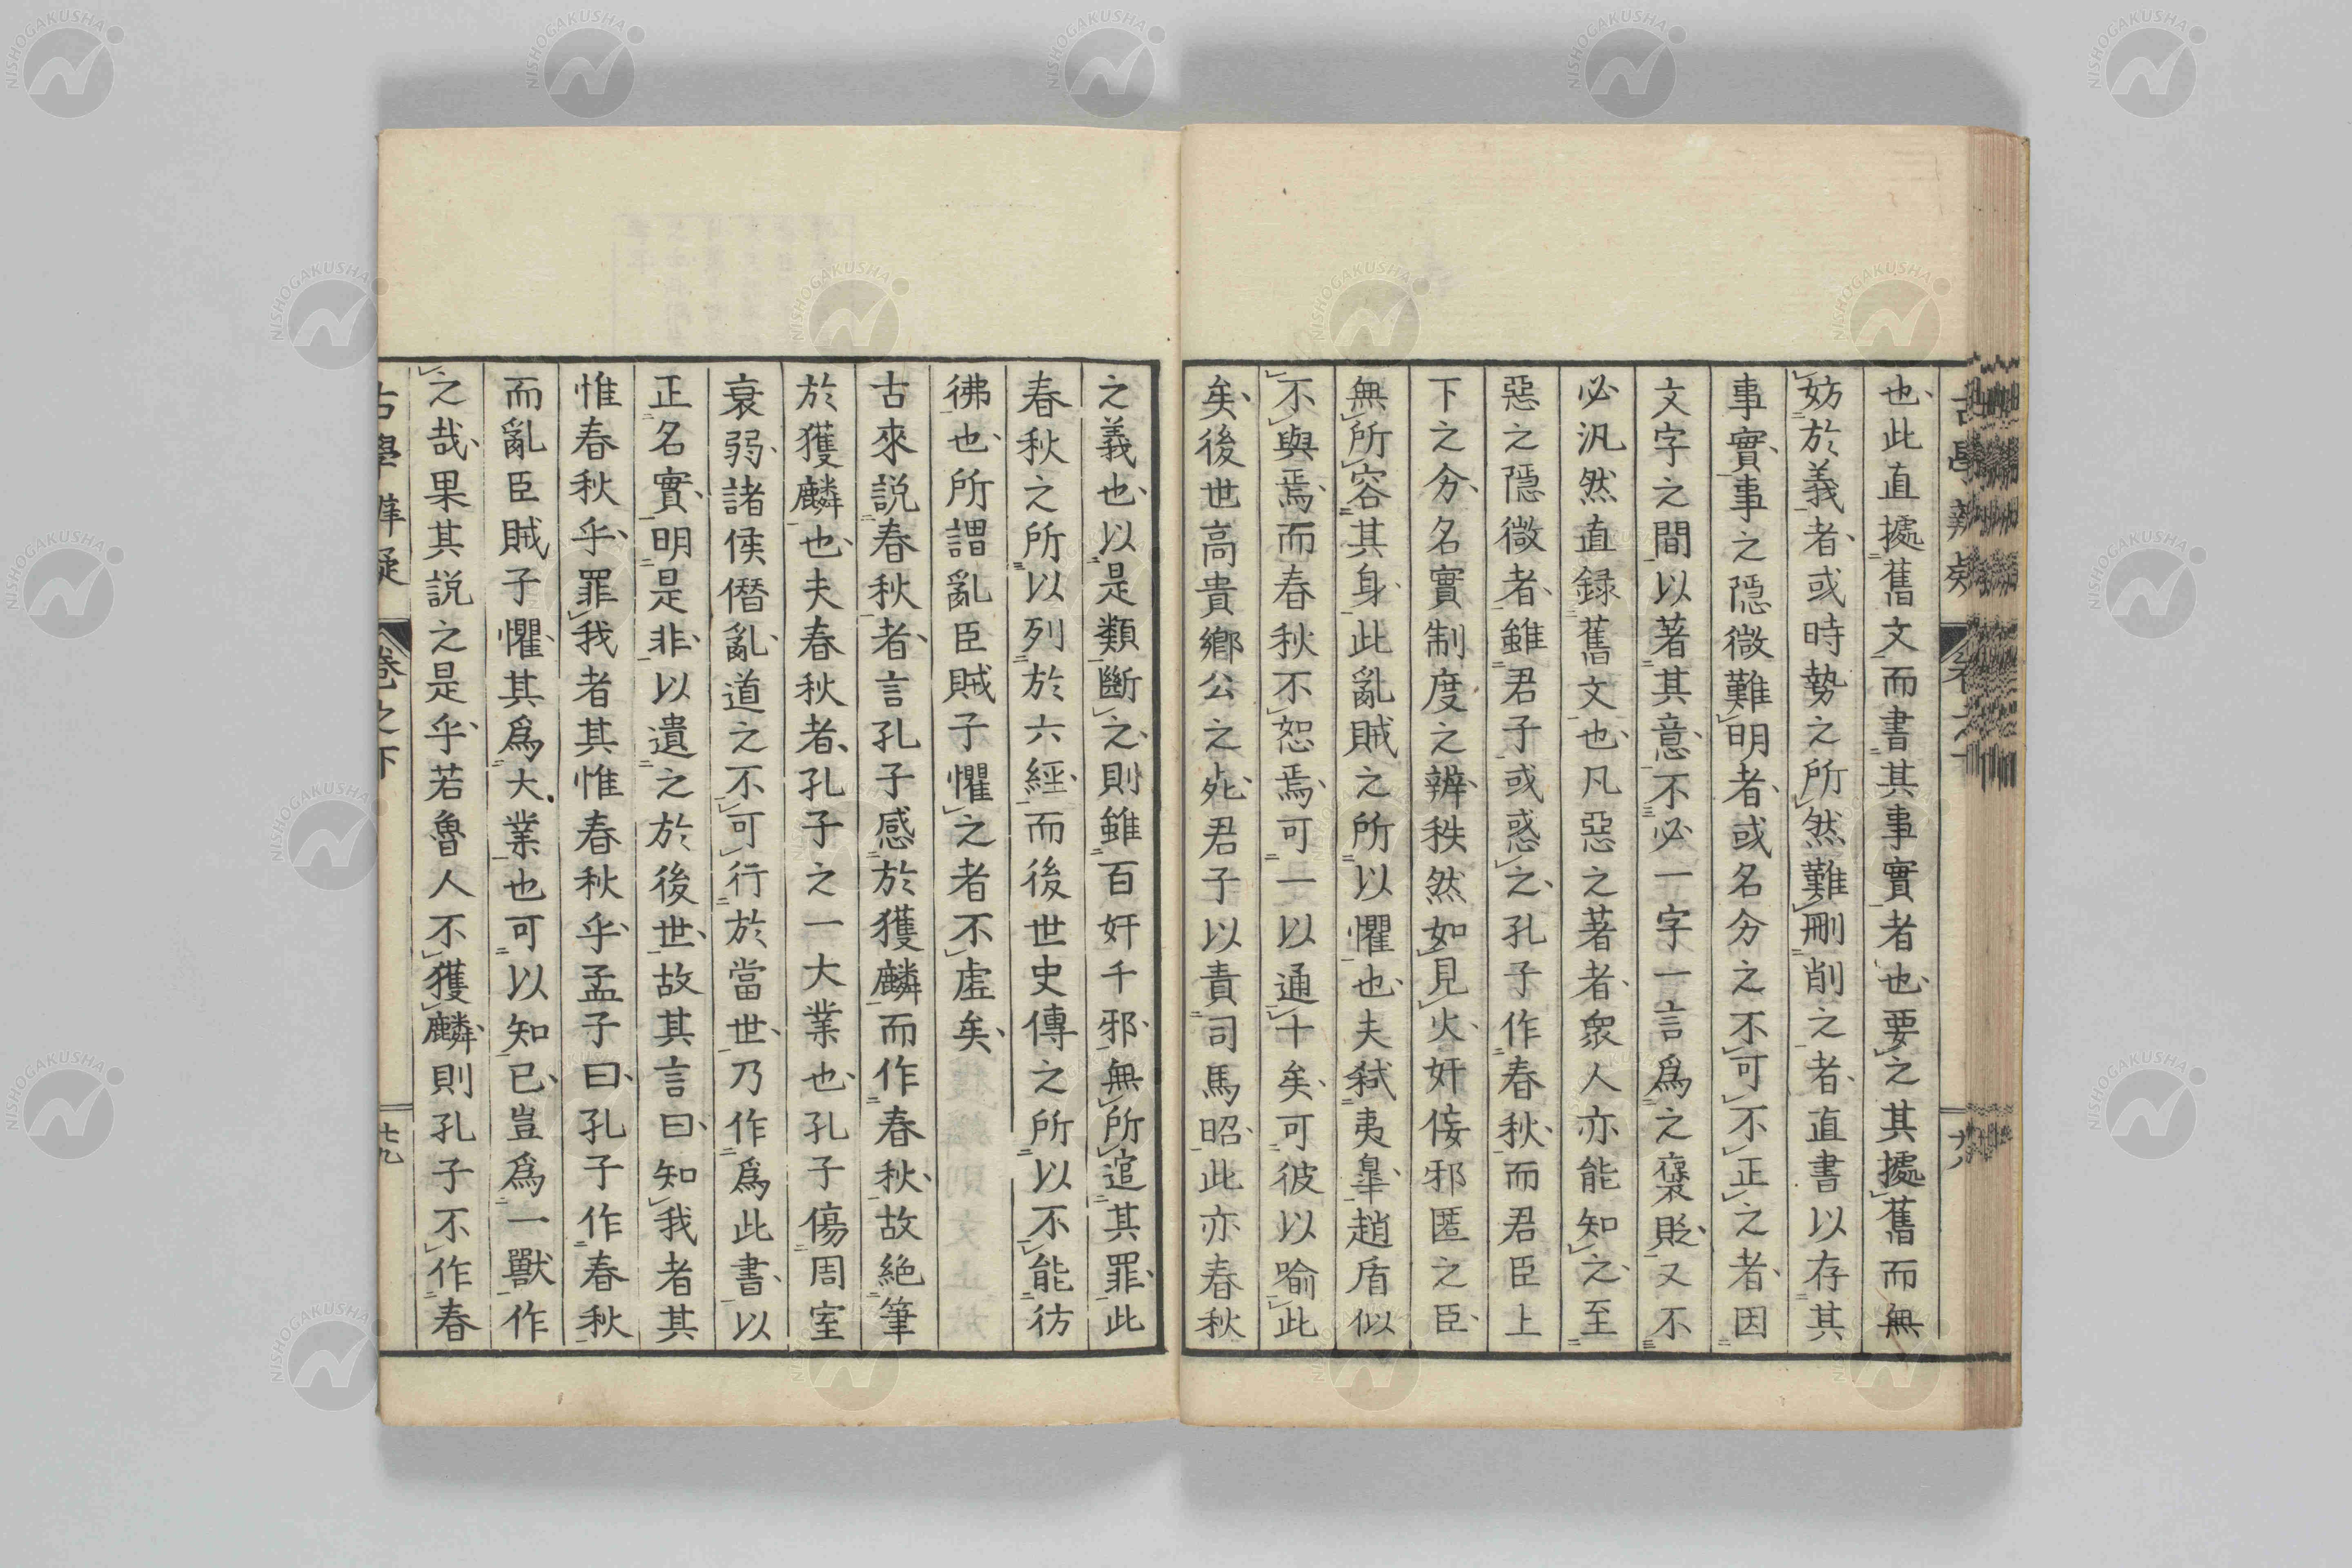 也此直據舊文而書其事實者也要之其據舊而無
妨於義者或時勢之所然難刪削之者直書以存其
事實事之隱微難明者或名分之不可不正之者因
文字之間以著其意不必一字一言爲之褒貶又不
必汎然直録舊文也凡惡之著者衆人亦能知之至
惡之隱微者雖君子或惑之孔子作春秋而君臣上
下之分名實制度之辨秩然如見火奸佞邪匿之臣
無所容其身此亂賊之所以懼也夫弑夷皐趙盾似
不與焉而春秋不恕焉可一以通十矣可彼以喻此
矣後世高貴鄉公之死君子以責司馬昭此亦春秋
之義也以是類斷之則雖百奸千邪無所逭其罪此
春秋之所以列於六經而後世史傳之所以不能彷
彿也所謂亂臣賊子懼之者不虛矣
古來説春秋者言孔子感於獲麟而作春秋故絶筆
於獲麟也夫春秋者孔子之一大業也孔子傷周室
衰弱諸侯僭亂道之不可行於當世乃作爲此書以
正名實明是非以遺之於後世故其言曰知我者其
惟春秋乎罪我者其惟春秋乎孟子曰孔子作春秋
而亂臣賊子懼其爲大業也可以知已豈爲一獸作
之哉果其説之是乎若魯人不獲麟則孔子不作春
古學辨疑 卷之下 十九
NISHOGAKUSHA